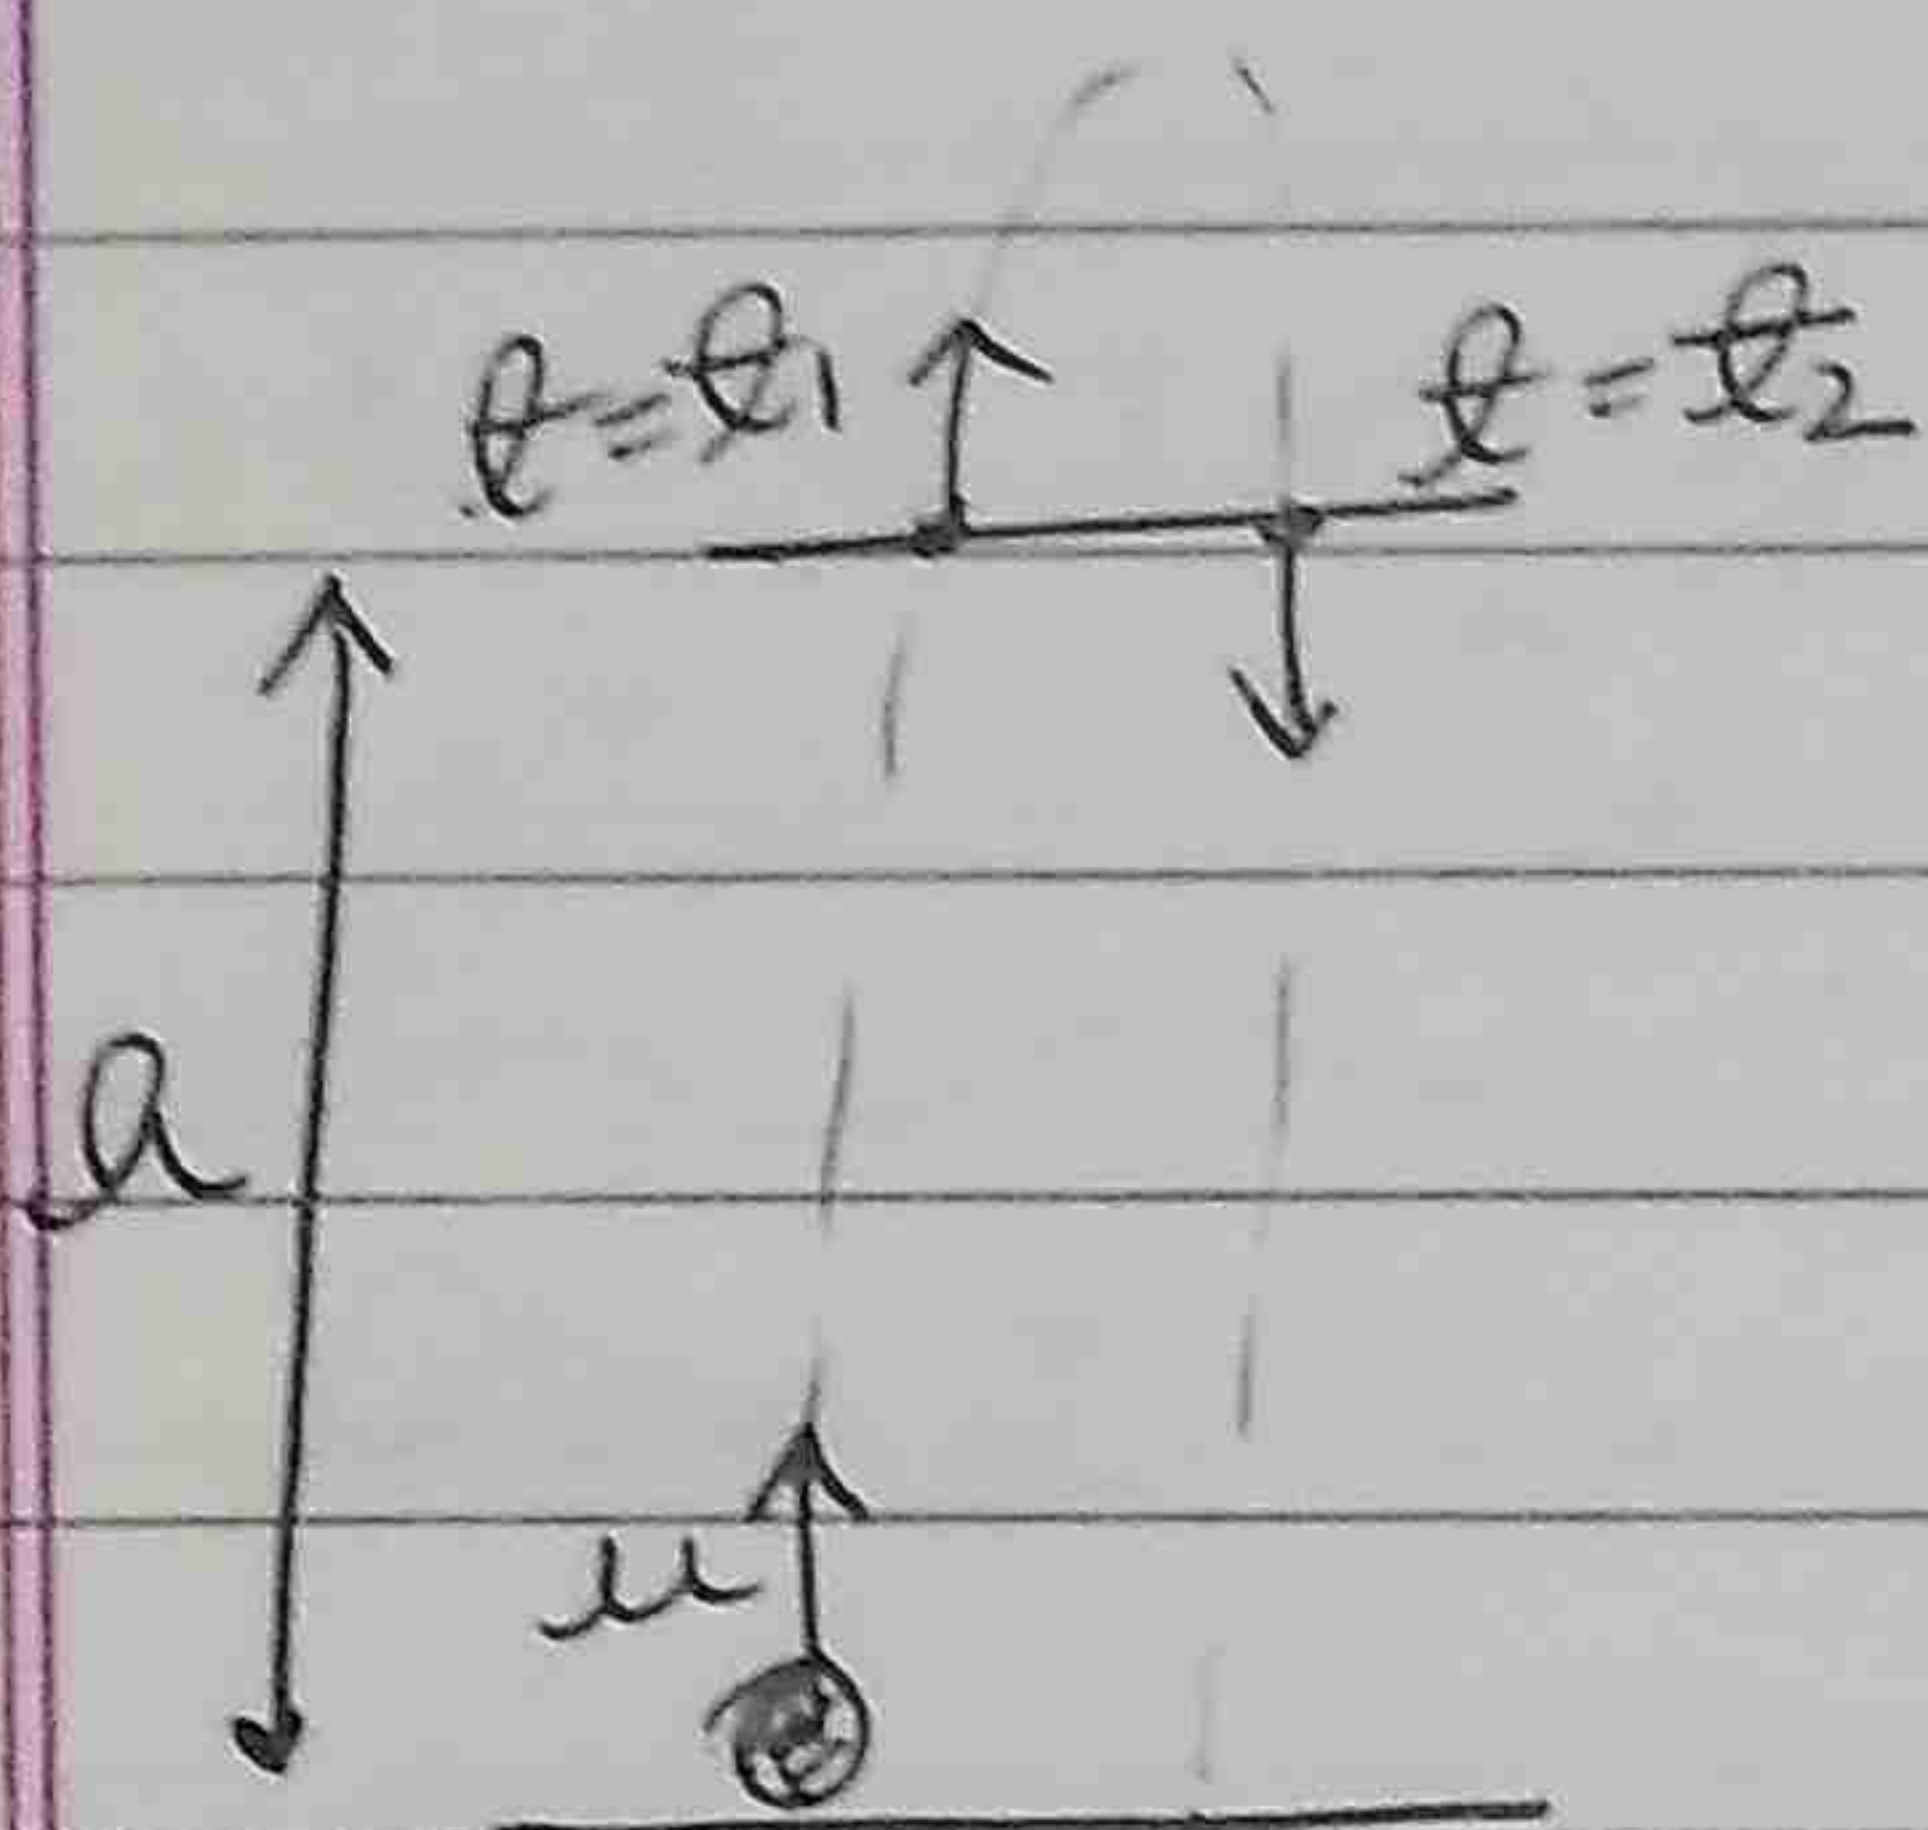 t=t1
t=t2
a
u